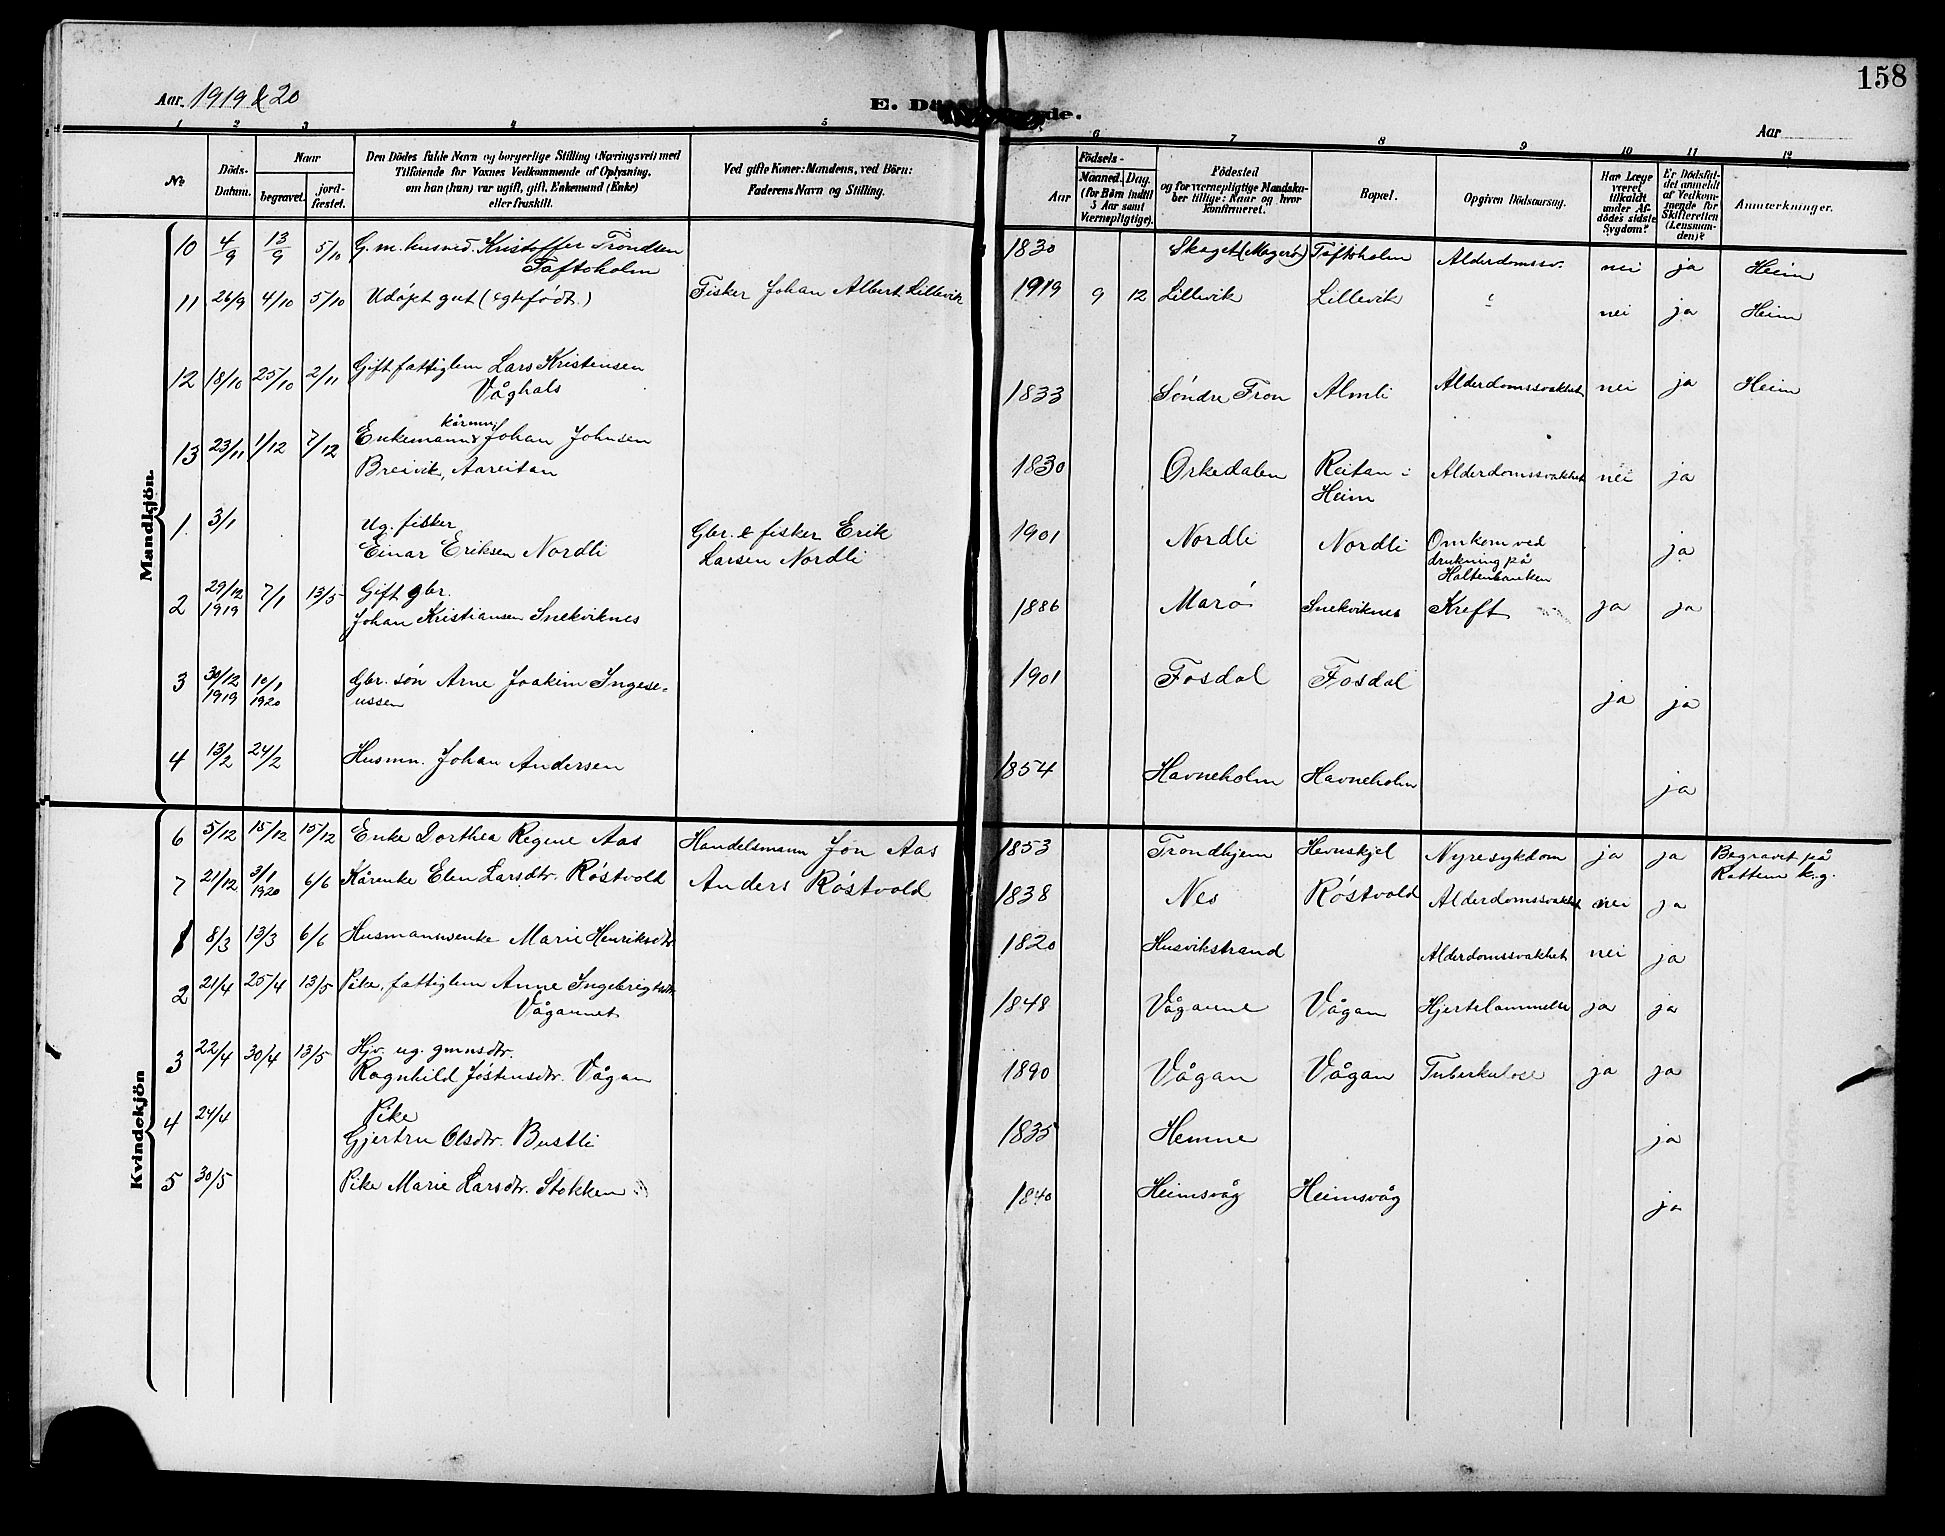 158
Aar. 1919 & 20
E. Dö de.
Aar
1 2 3 4 5 6 7 8 9 10 11 12
No
Döds-Datum.
Naar
begravet.
jord-fæstet.
Den Dödes fulde Navn og borgerlige Stilling (Næringsvei) med
Tilföiende for Voxnes Vedkommende af Oplysning,
om han (hun) var ugift, gift, Enkemand (Enke)
eller fraskilt.
Ved gifte Koner: Mandens, ved Börn:
Faderens Navn og Stilling.
Aar
Födsels-
Maaned. Dag.
(for Börn indtil
5 Aar samt
Værnepligtige).
Födested
og for værnepligtige Mandska-
ber tillige: Naar og hvor
konfirmeret.
Bopæl.
Opgiven Dödsaarsag.
Har Læge
været
tilkaldt
under Af-
dödes sidste
Sygdom?
Er Dödsfal-
det anmeldt
af Vedkom-
mende for
Skifteretten
(Lensman-
den)?
Anmærkninger.
Mandkjön.
10 4/9 13/9 5/10 G. m. husmd. Kristoffer Trondsen
Taftoholm
1830 Skaget (Magerö) Taftoholm Alderdomssv. nei ja Heim
11 26/9 4/10 5/10 Udöpt gut (egtefödt.) Fisker Johan Albert Lillevik 1919 9 12 Lillevik Lillevik nei ja Heim
12 18/10 25/10 2/11 Gift fattiglem Lars Kristensen
Våghals
1833 Söndre Fron Almli Alderdomssvakhet nei ja Heim
kårmn
13 23/11 1/12 7/12 Enkemann & Johan Johnsen
Breivik, Aareitan
1830 Orkedalen Reitan i
Heim
Alderdomssvakhet nei ja
1. 3/1 Ug. fisker
Einar Eriksen Nordli
Gbr. & fisker Erik
Larsen Nordli
1901 Nordli Nordli Omkom ved
drukning på
Haltenbanken
ja
2 29/12 1919 7/1 13/5 Gift gbr.
Johan Kristiansen Snekviknes
1886 Marö Snekviknes Kreft ja ja
3 30/12 1919 10/1 1920 Gbr. sön Arne Joakim Ingese-
ussen
1901 Fosdal Fosdal ja ja
4 13/2 24/2 Husmn. Johan Andersen 1854 Havneholm Havneholm ja
Kvindekjön
6 5/12 15/12 15/12 Enke Dorthea Regine Aas Handelsmann Jon Aas 1853 Trondhjem Hevnskjel Nyresykdom ja ja Begravet på
Rottem k.g.
7 21/12 3/1 1920 6/6 Kårenke Elen Larsdtr. Röstvold Anders Röstvold 1838 Nes Röstvold Alderdomssvakhet nei ja
1 8/3 13/3 6/6 Husmannsenke Marie Henriksdtr. 1820 Husvikstrand Alderdomssvakhet nei ja
2 21/4 25/4 13/5 Pike, fattiglem Anne Ingebrigtsdtr.
Vågannet
1848 Våganne Vågan Hjertelammelse ja ja
3 22/4 30/4 13/5 Hjv. ug. gmnsdtr.
Ragnhild Jöstensdtr. Vågan
1890 Vågan Vågan Tuberkulose ja ja
4 24/4 Pike
Gjertru Olsdtr. Bustli
1835 Hemne ja
5 30/5 Pike Marie Larsdtr. Stokken 1840 Heimsvåg Heimsvåg ja